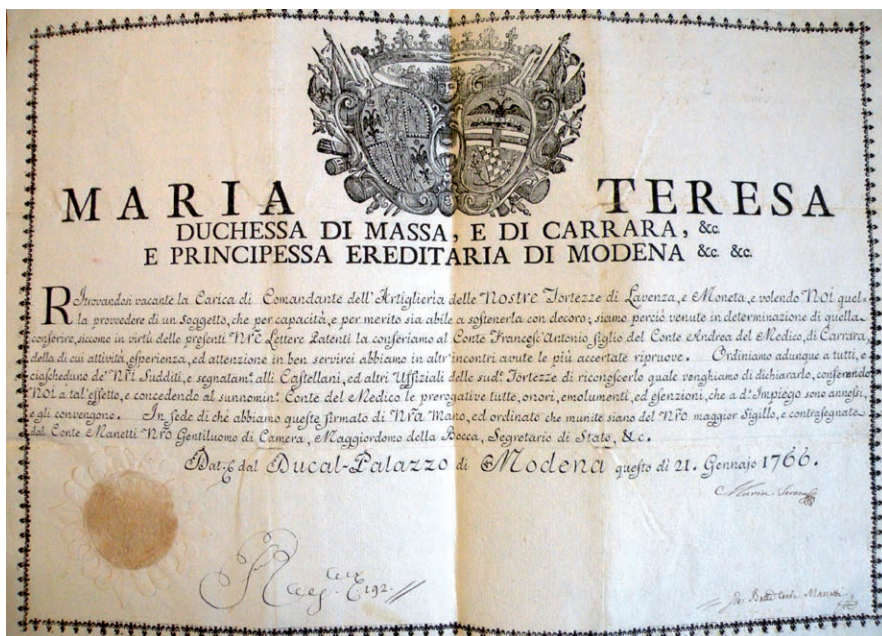 MARIA TERESA
DUCHESSA DI MASSA, E DI CARRARA, &c.
E PRINCIPESSA EREDITARIA DI MODENA &c. &c.
RItrovandosi vacante la Carica di Comandante dell' Artiglieria delle Nostre Fortezze di Lavenza, e Moneta, e volendo Noi quel=
la provvedere di un Soggetto, che per capacità, e per merito sia abile a sostenerla con decoro; siamo perciò venute in determinazione di quella
conferire, siccome in virtù delle presenti Nr̃e Lettere Patenti la conferiamo al Conte Francesc' Antonio figlio del Conte Andrea del Medico, di Carrara,
della di cui attività, esperienza, ed attenzione in ben servirci abbiamo in altr' incontri avute le più accertate ripruove. Ordiniamo adunque a tutti, e
ciascheduno de' Nr̃i Sudditi, e segnatam.e alli Castellani, ed altri Uffiziali delle sud.e Fortezze di riconoscerlo quale venghiamo di dichiararlo, conferendo
Noi a tal' effetto, e concedendo al sunnomin.o Conte del Medico le prerogative tutte, onori, emolumenti, ed esenzioni, che a d.o Impiego sono annessi,
e gli convengono. In fede di chè abbiamo queste firmato di Nr̃a Mano, ed ordinato che munite siano del Nr̃o maggior Sigillo, e contrasegnate
dal Conte Manetti Nr̃o Gentiluomo di Camera, Maggiordomo della Bocca, Segretario di Stato, &c.
Dat. dal Ducal=Palazzo di Modena questo dì 21. Gennajo 1766.
Maria Teresa
192.
Manetti